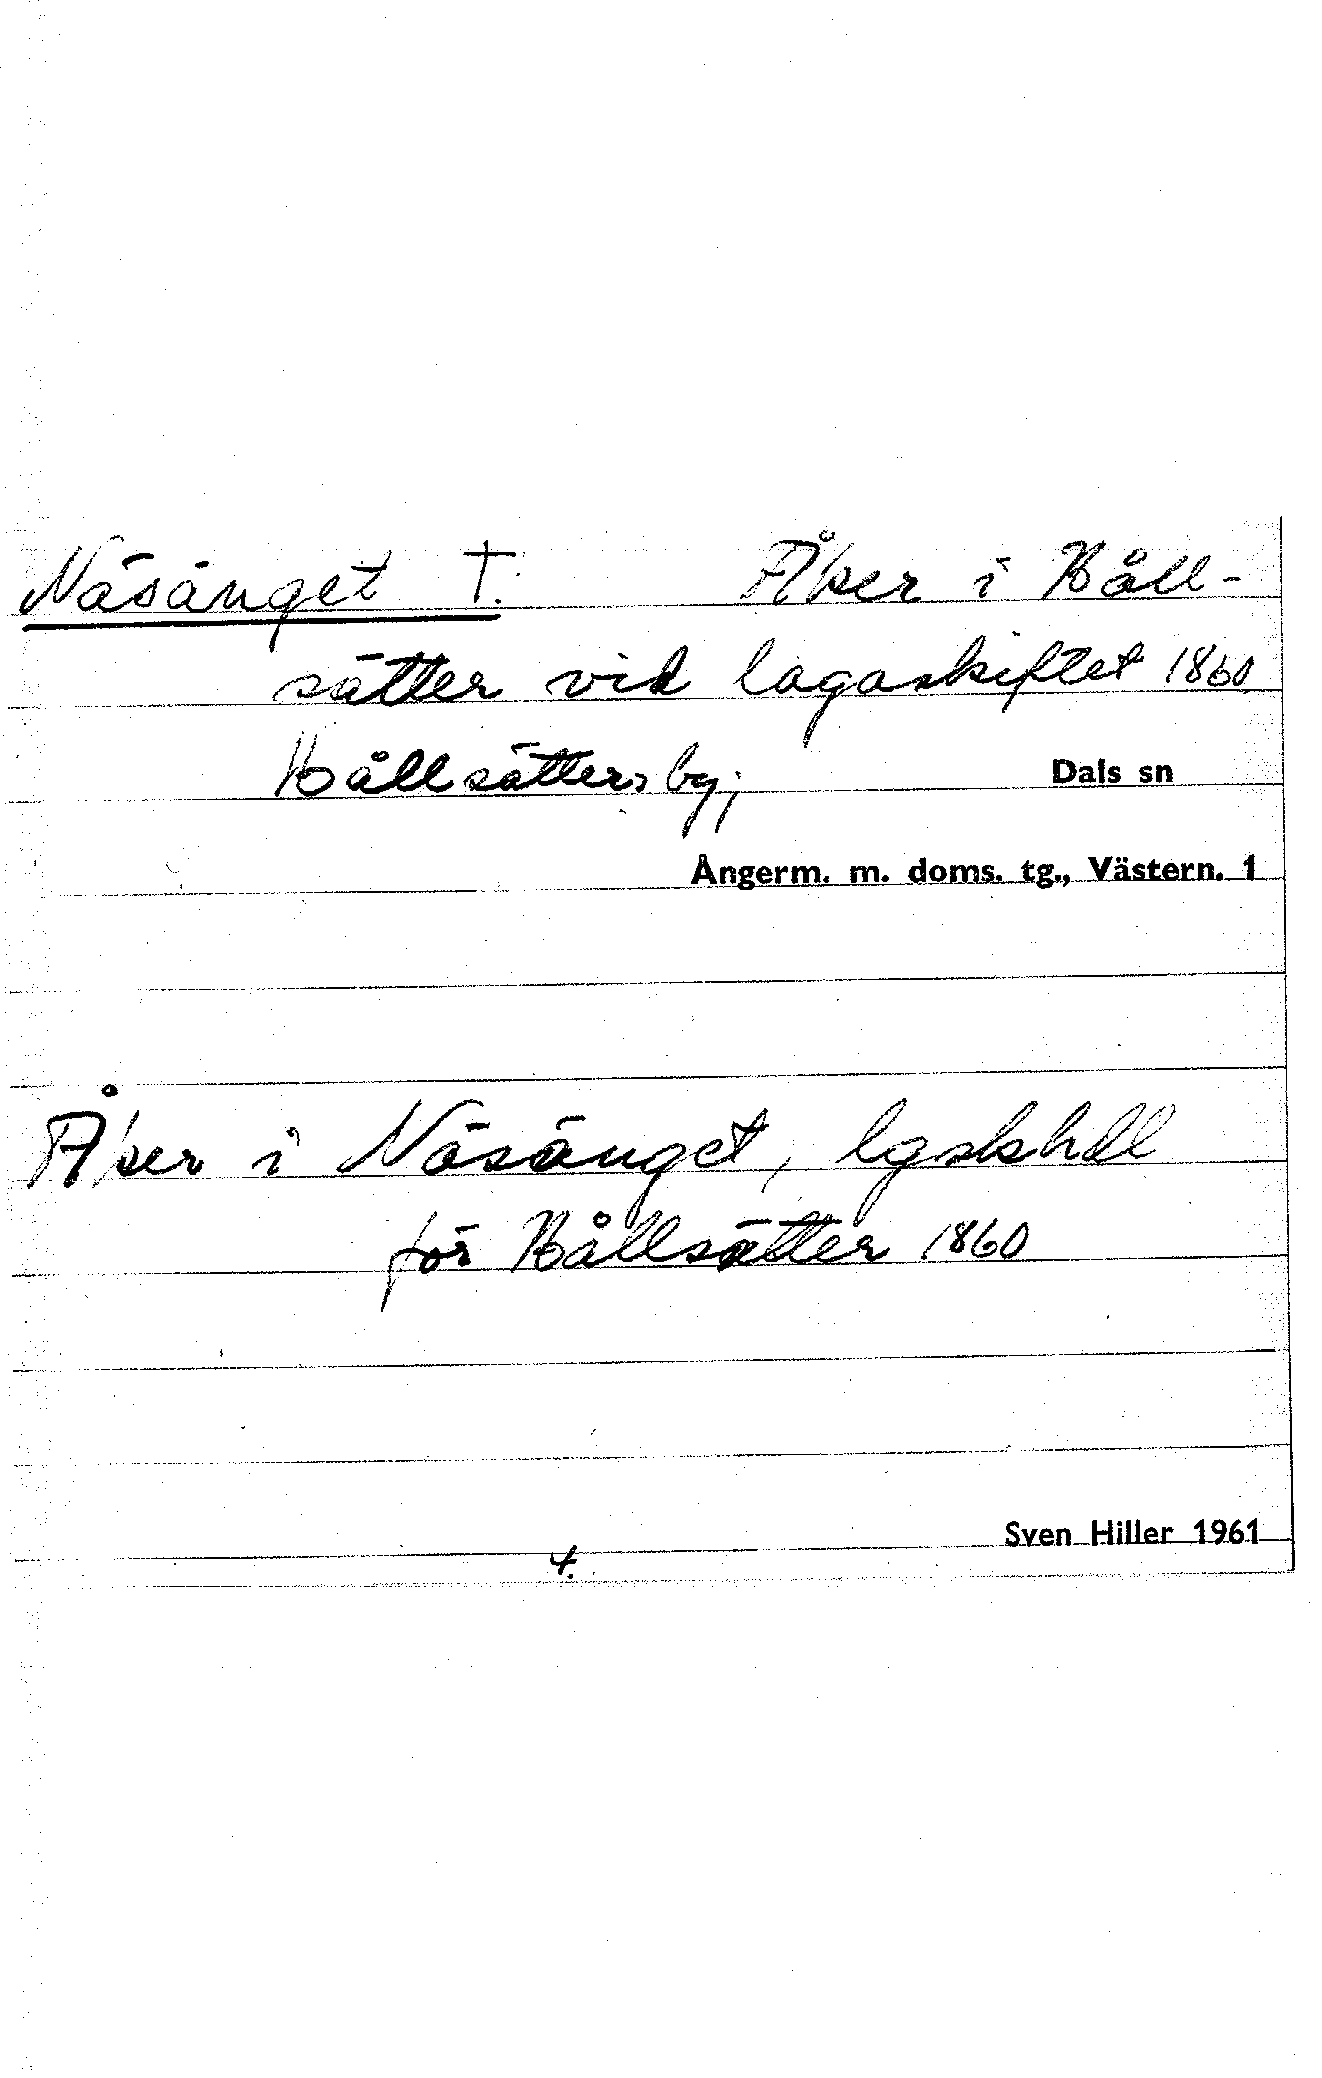 Näsänget †. Åker i Håll-
sätter vid lagaskiftet 1860
Hållsätters by; Dals sn
Ångerm. m. doms. tg., Västern. 1
Åker i Näsänget, lgskhdl
för Hållsätter 1860
Sven Hiller 1961
4.